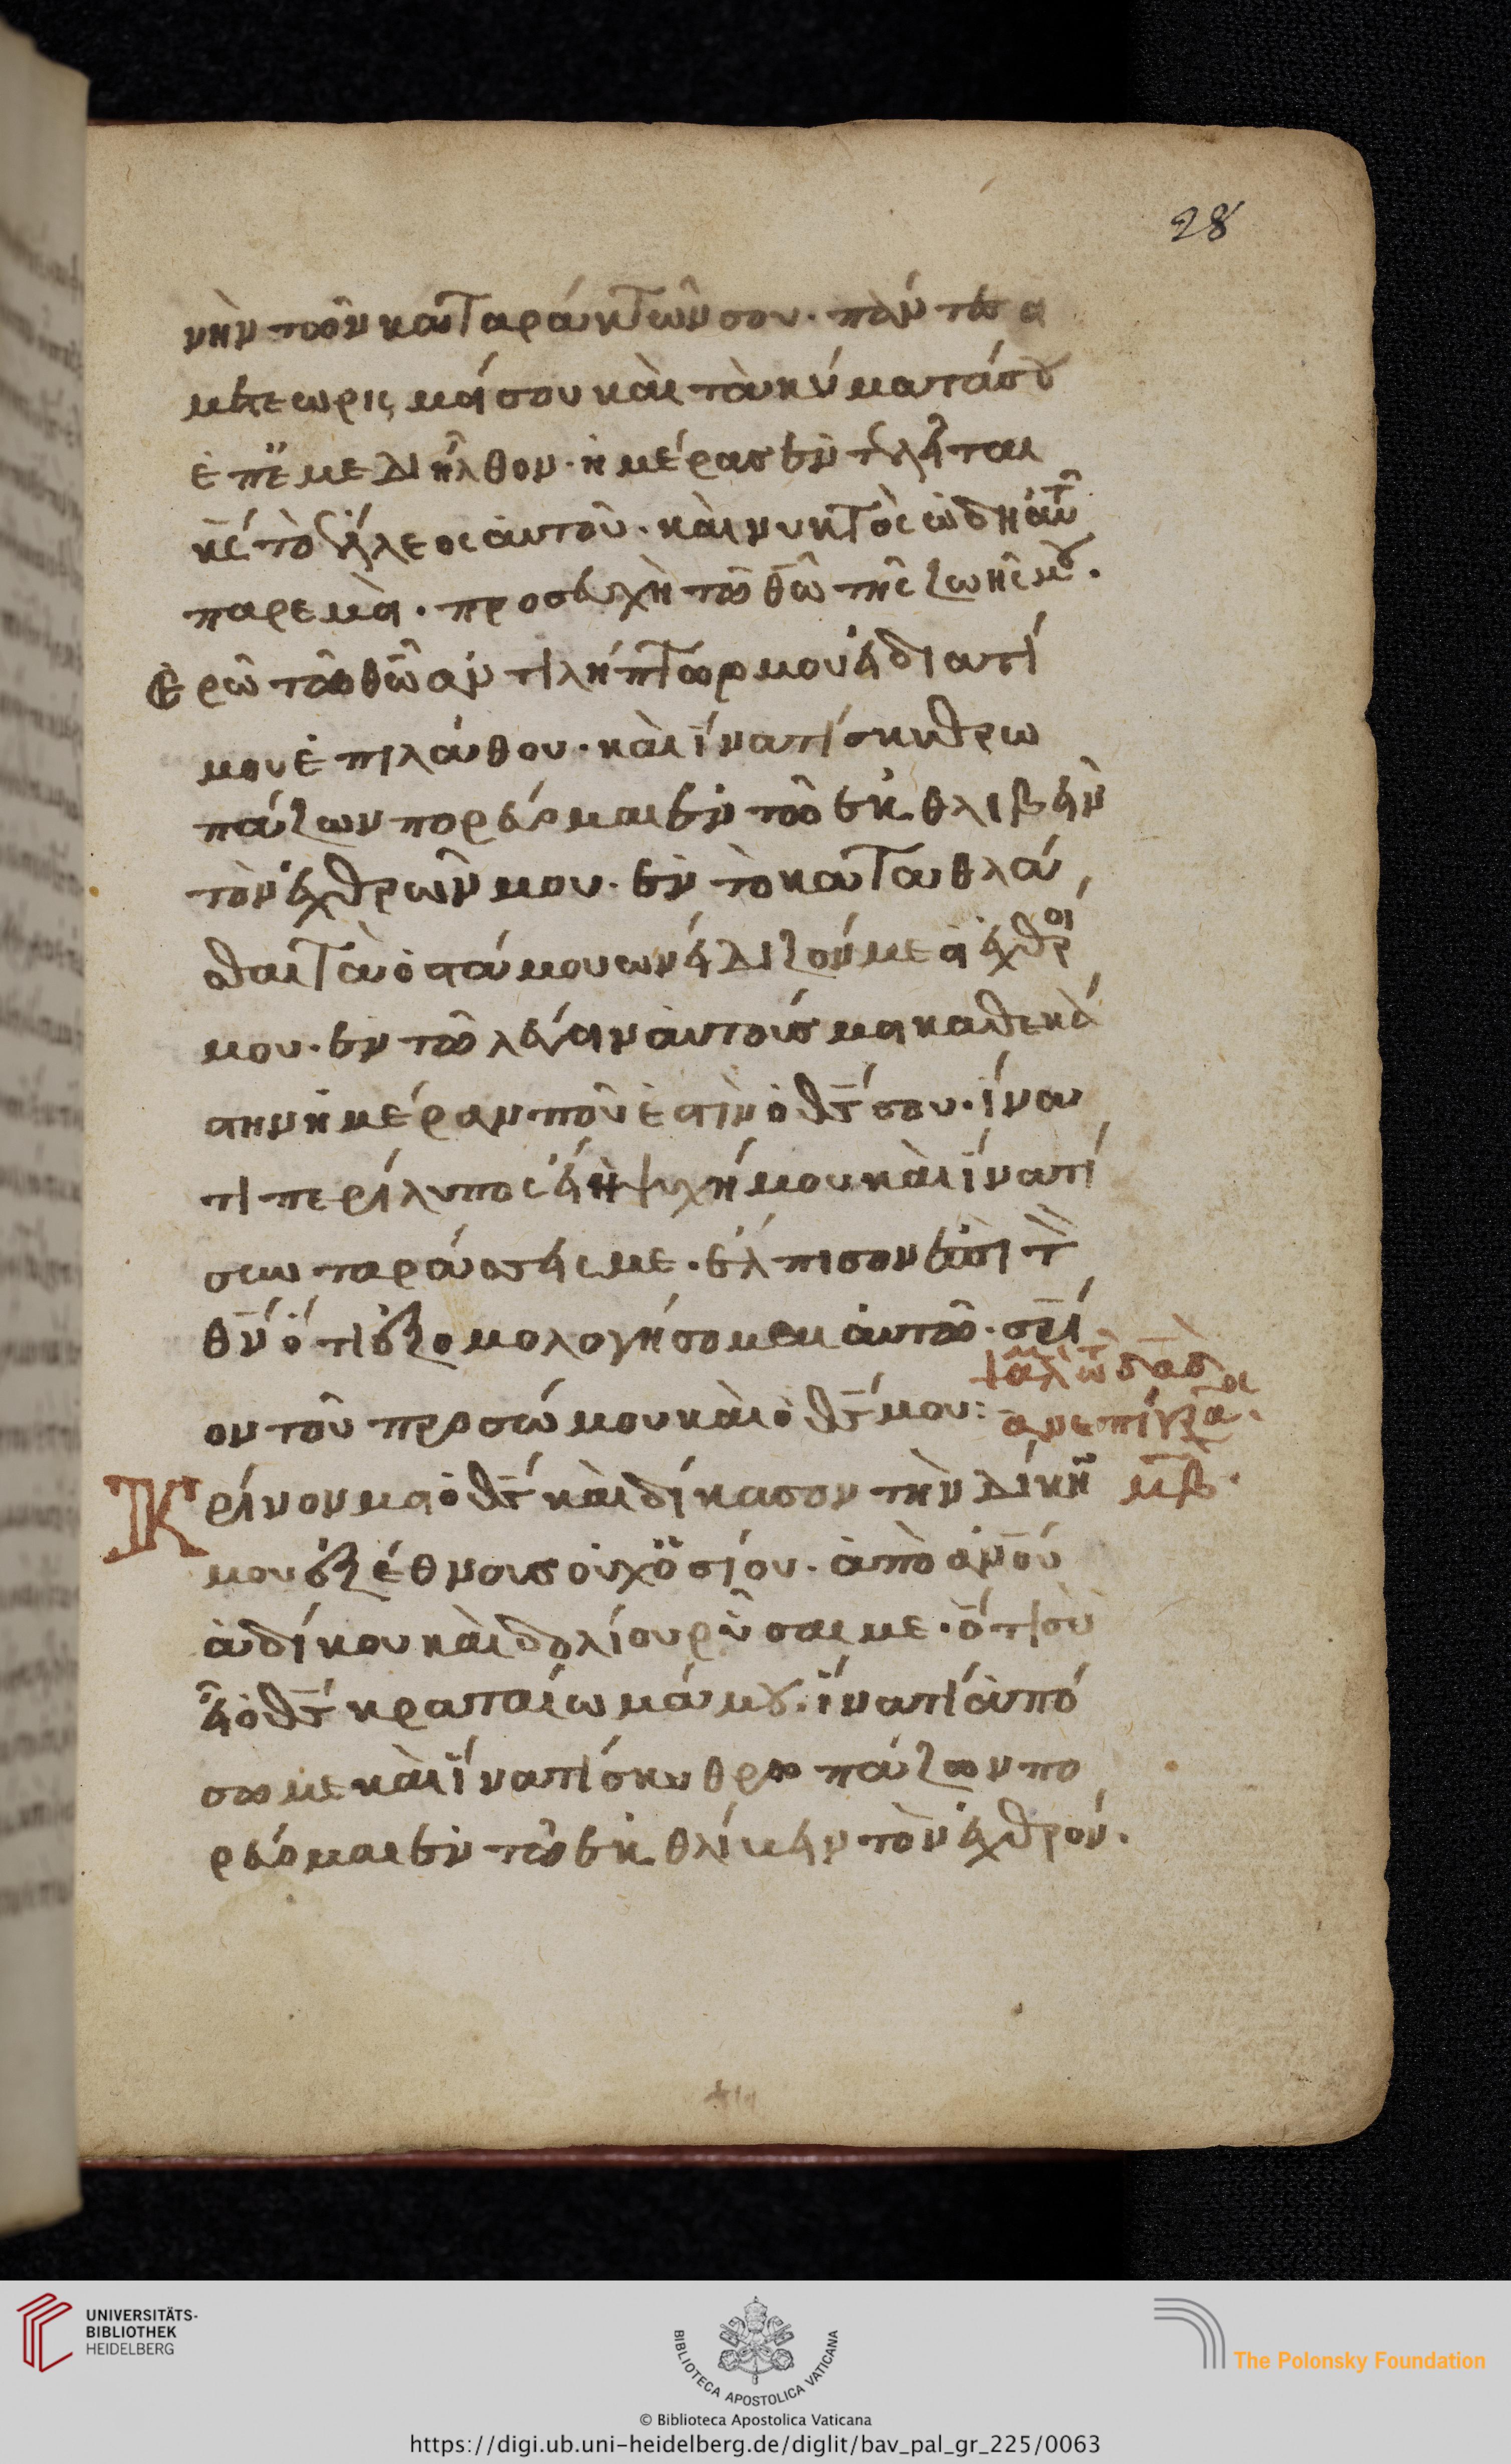 28
νὴν τῶν καταράκτῶν σου· πάντα α
μετεωρισμοί σου καὶ τὰ κύματά σου
ἐπ' ἐμὲ διῆλθον· ἡμέρας ἐντελεῖται
κς τὸ ἔλεος ἀυτοῦ· καὶ νυκτὸς ὠδὴ ἀυτ
παρεμοὶ· προσευχὴ τῶ θῶ τῆς ζωῆς μου·
Ἐρῶ τῶ θῶ ἀντιλήπτωρ μου εἶ διατί
μου ἐπιλάθου· καὶ ἵνατί σκυθρω
πάζων πορεύομαι ἐν τῶ ἐκθλίβειν
τὸν ἐχθρῶν μου· ἐν τὸ καταθλά
σθαι τὰ ὀστά μου ὠνείδιζόν με οἱ ἐχθροί
μου· ἐν τῶ λέγειν ἀυτούς μοι καθεκά
στην ἡμέραν ποῦ ἐστὶν ὁ θς σου· ἵνα
τί περίλυπος εἶ ἡ ψυχή μου καὶ ἵνατί
συνταράσσεις με· ἔλπισον ἐπὶ τ
θν ὅτι ἐξομολογήσομαι ἀυτῶ· σρι
ον τοῦ προσώ μου καὶ ὁ θς μου:
ψαλμὸς τῶ δαδ
ἀνεπίγρα·
Κρίνον μοι ὁ θς καὶ δίκασον τὴν δίκην μβ·
μου ἐξ ἔθνους οὐχ ὁσίου· ἀπὸ ἀνου
ἀδίκου καὶ δολίου ρῦσαι με· ὅτι σὺ
εἶ ὁ θς κραταίωμά μου· ἵνατί ἀπό
σω με καὶ ἵνατί σκυθρωπάζων πο
ρεύομαι ἐν τῶ ἐκθλίβειν τὸν ἐχθρόν·
UNIVERSITÄTS-
BIBLIOTHEK
HEIDELBERG
BIBLIOTECA APOSTOLICA VATICANA
The Polonsky Foundation
© Biblioteca Apostolica Vaticana
https://digi.ub.uni-heidelberg.de/diglit/bav_pal_gr_225/0063